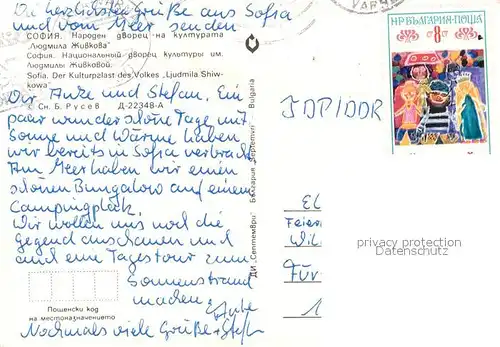 Die herzlichsten Grüße aus Sofia
und vom Meer senden
СОФИЯ. Народен дворец на културата
„Людмила Живкова"
София. Национальный дворец культуры им.
Людмилы Живковой.
Sofia. Der Kulturpalast des Volkes „Ljudmila Shiw-
kowa"
Dir Anke und Stefan. Ein
© Сн. Б. Русев Д-22348-А
paar wunderschöne Tage mit
Sonne und Wärme haben
wir bereits in Sofia verbracht
Am Meer haben wir einen
schönen Bungalow auf einem
Campingplatz.
Wir wollen uns noch die
Gegend anschauen und
auch eine Tagestour zum
Sonnenstrand
machen.
Пощенски код
на местоназначението
Nochmals viele Grüße
ДИ „Септември" България Septemvri Bulgaria
НР БЪЛГАРИЯ·ПОЩА
8
DDR
El
Feier
Wil
Für
1
privacy protection
Datenschutz